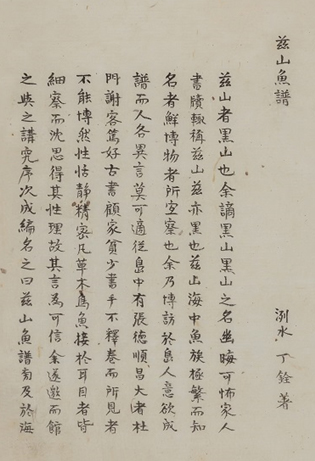 茲山魚譜
洌水 丁銓著
茲山者黑山也余謫黑山黑山之名幽晦可怖家人
書牘輒稱茲山茲亦黑也茲山海中魚族極繁而知
名者鮮博物者所宜察也余乃博訪於島人意欲成
譜而人各異言莫可適從島中有張德順昌大者杜
門謝客篤好古書顧家貧少書手不釋卷而所見者
不能博然性恬靜精密凡草木鳥魚接於耳目者皆
細察而沈思得其性理故其言為可信余遂邀而館
之與之講究序次成編名之曰茲山魚譜旁及於海